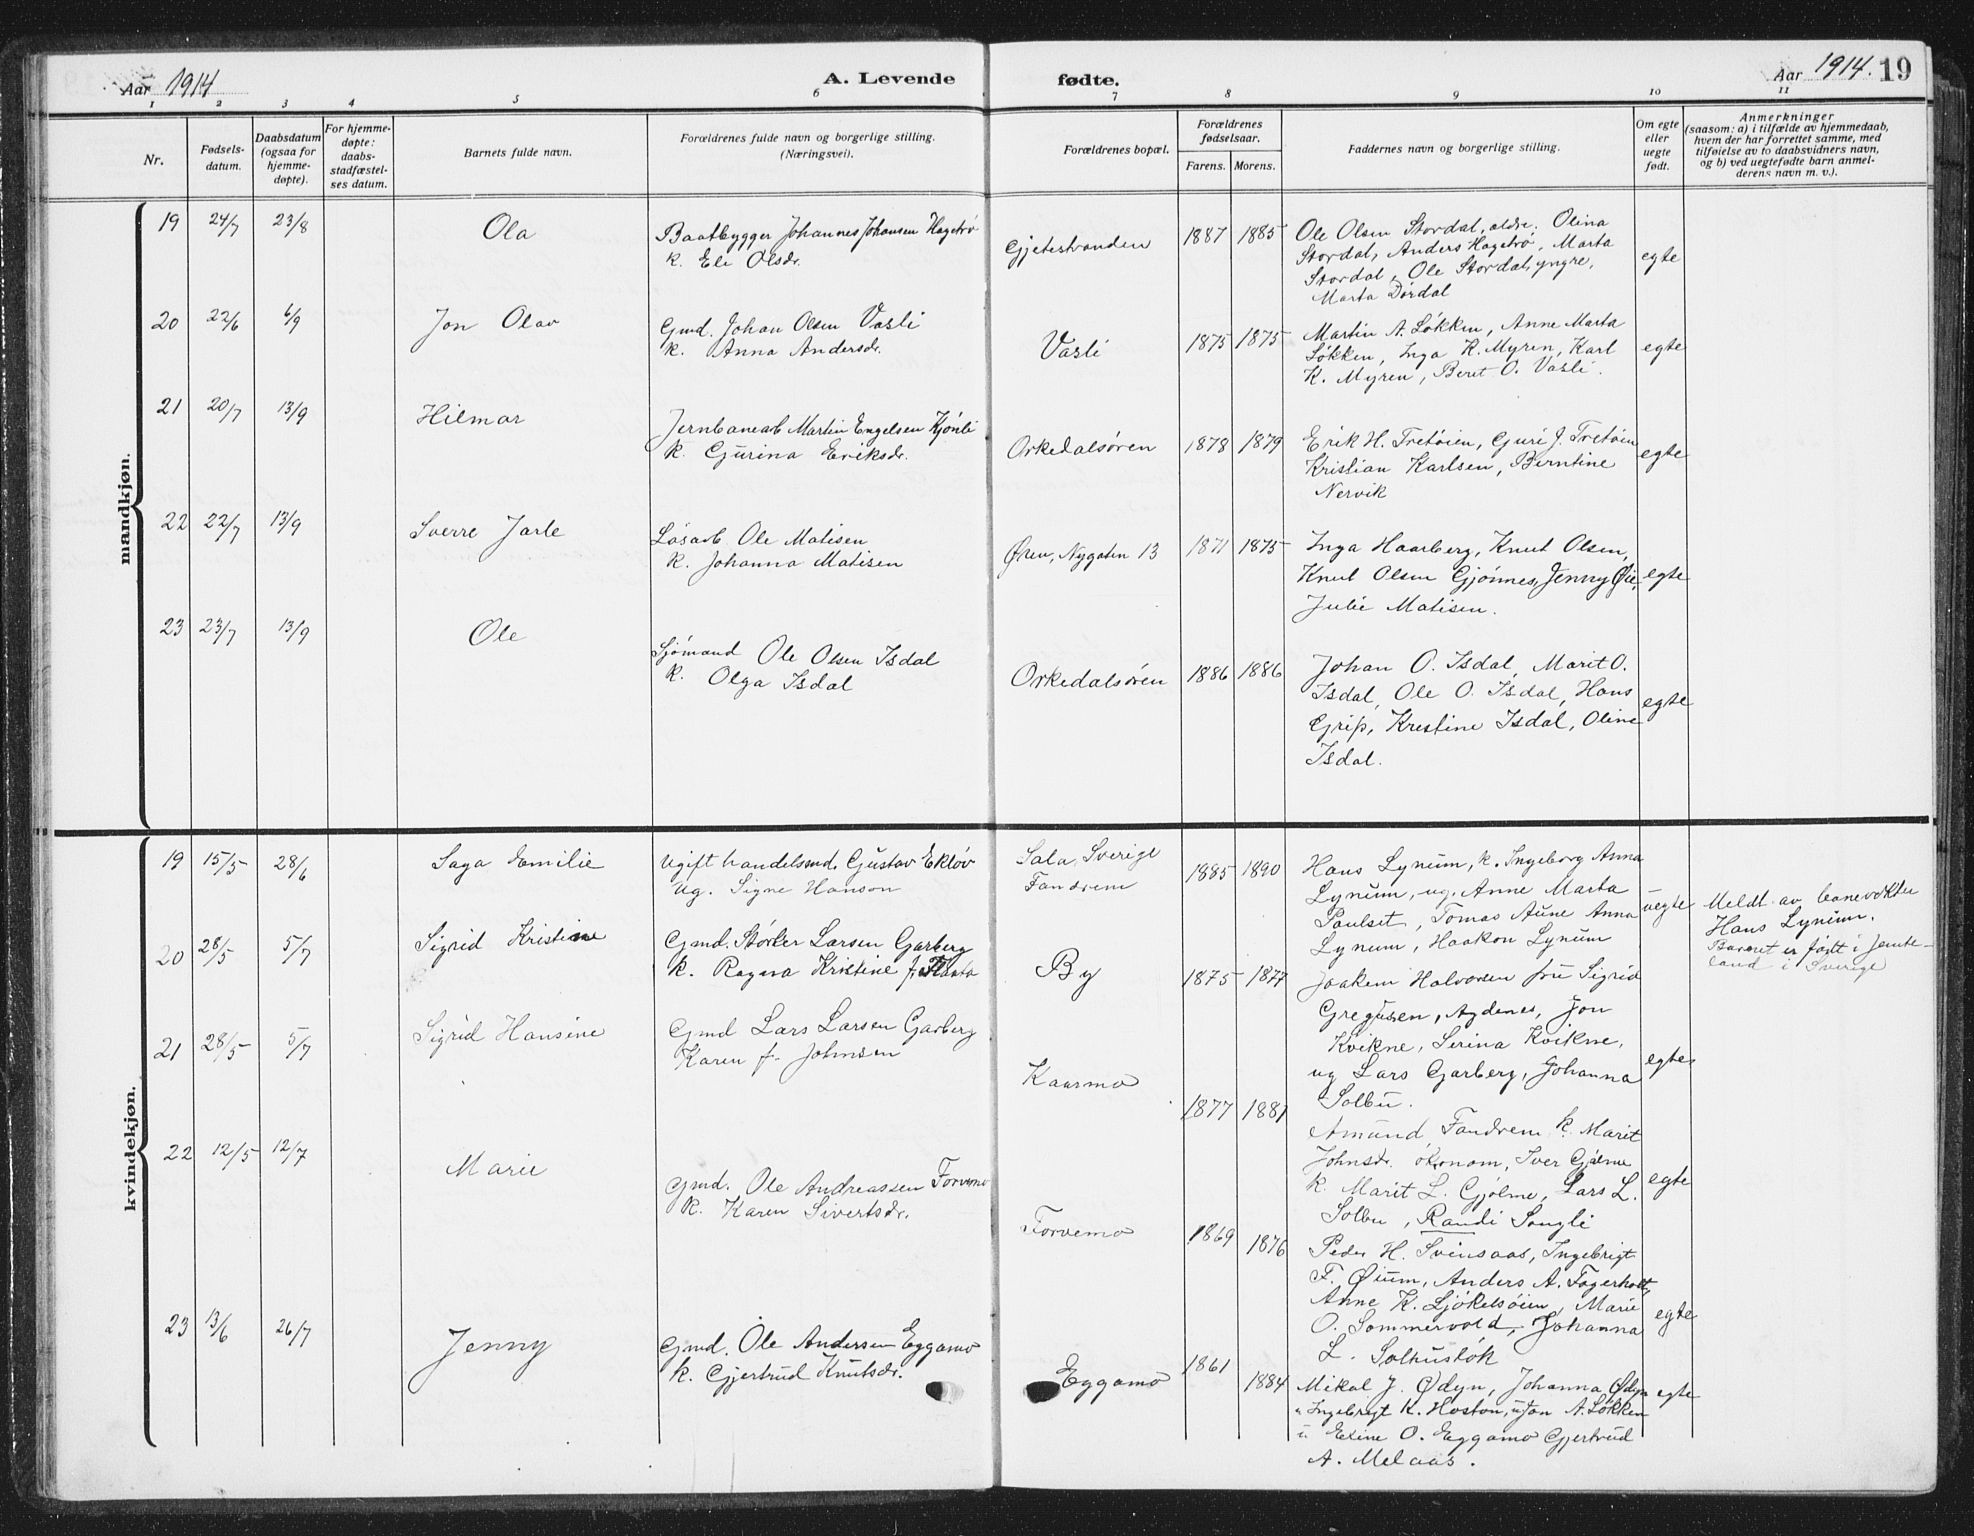 Aar 1914
A. Levende fødte.
Aar 1914. 19
1 2 3 4 5 6 7 8 9 10 11
Nr.
Fødsels-
datum.
Daabsdatum
(ogsaa for
hjemme-
døpte).
For hjemme-
døpte:
daabs-
stadfæstel-
ses datum.
Barnets fulde navn.
Forældrenes fulde navn og borgerlige stilling.
(Næringsvei).
Forældrenes bopæl.
Forældrenes
fødselsaar.
Farens. Morens.
Faddernes navn og borgerlige stilling.
Om egte
eller
uegte
født.
Anmerkninger
(saasom: a) i tilfælde av hjemmedaab,
hvem der har forrettet samme, med
tilføielse av to daabsvidners navn,
og b) ved uegtefødte barn anmel-
derens navn m. v.).
mandkjøn.
19 24/7 23/8 Ola
Baatbygger Johannes Johansen Hagetrø
k. Eli Olsdr.
Gjetestranden 1887 1885
Ole Olsen Stordal, ældre, Olina
Stordal, Anders Hagetrø, Marta
Stordal, Ole Stordal, yngre,
Marta Dørdal
egte
20 22/6 6/9 Jon Olav
Gmd. Johan Olsen Vasli
k. Anna Andersdr.
Vasli 1875 1875
Martin A. Løkken, Anne Marta
Løkken, Inga K. Myren, Karl
K. Myren, Beret O. Vasli.
egte
21 20/7 13/9 Hilmar
Jernbanearb Martin Engelsen Kjønli
k. Gurina Eriksdr.
Orkedalsøren 1878 1879
Erik H. Tretøien, Guri J. Tretøien
Kristian Karlsen, Berntine
Nervik
egte
22 22/7 13/9 Sverre Jarle
Løsarb Ole Matisen
k. Johanna Matisen
Øren, Nygaten 13 1871 1875
Inga Haarberg, Knut Olsen,
Knut Olsen Gjønnes, Jenny Øie,
Julie Matisen.
egte
23 23/7 13/9 Ole
Sjømand Ole Olsen Isdal
k. Olga Isdal
Orkedalsøren 1886 1886
Johan O. Isdal, Marit O.
Isdal, Ole O. Isdal, Hans
Grip, Kristine Isdal, Oline
Isdal.
egte
kvindekjøn.
19 15/5 28/6 Saga Emilie
Ugift handelsmd. Gustav Ekløv
ug. Signe Hanson
Sala, Sverige
Fandrem
1885 1890
Hans Lynum, k. Ingeborg Anna
Lynum, ug. Anne Marta
Paulset, Tomas Aune Anna
Lynum, Haakon Lynum
uegte
Meldt av banevokter
Hans Lynum.
Barnet er født i Jemte-
land i Sverige
20 28/5 5/7 Sigrid Kristine
Gmd. Størker Larsen Garberg
k. Ragna Kristine f.
By 1875 1877
Joakim Halvorsen fru Sigrid
Gregusen, Agdenes, Jon
Kvikne, Serina Kvikne,
ug Lars Garberg, Johanna
Solbu.
egte
21 28/5 5/7 Sigrid Hansine
Gmd Lars Larsen Garberg
Karen f. Johnsen
Kaarmo 1877 1881
Amund Fandrem k. Marit
Johnsdr. økonom, Iver Gjølme
k. Marit L. Gjølme, Lars L.
Solbu, Randi Songli
egte
22 12/5 12/7 Marie
Gmd. Ole Andreassen Forvemo
k. Karen Sivertsdr.
Forvemo 1869 1876
Peder H. Svinsaas, Ingebrigt
F. Øium, Anders A. Fagerholt,
Anne K. Ljøkelsøien, Marie
O. Sommervold, Johanna
L. Solhusløk
egte
23 13/6 26/7 Jenny
Gmd. Ole Andersen Eggamo
k. Gjertrud Knutsdr.
Eggamo 1861 1884
Mikal J. Ødyn, Johanna Ødyn
u Ingebrigt K. Hoston, u Jon A. Løkken
u Eline O. Eggamo Gjertrud
A. Melaas.
egte